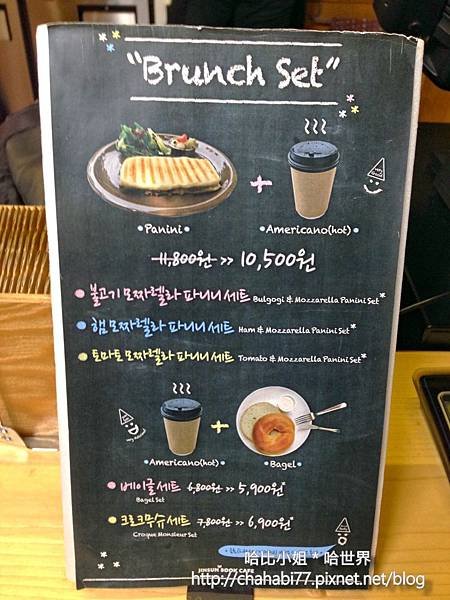 "Brunch Set"
Panini + Americano(hot)
11,800원 >> 10,500원
불고기 모짜렐라 파니니 세트 Bulgogi & Mozzarella Panini Set*
햄 모짜렐라 파니니 세트 Ham & Mozzarella Panini Set*
토마토 모짜렐라 파니니 세트 Tomato & Mozzarella Panini Set*
+
Americano(hot) Bagel
베이글 세트 6,800원 >> 5,900원
Bagel Set
크로크무슈 세트 7,800원 >> 6,900원
Croque Monsieur Set
哈比小姐 * 哈世界
JINSUN BOOK CAFE
http://chahabi77.pixnet.net/blog